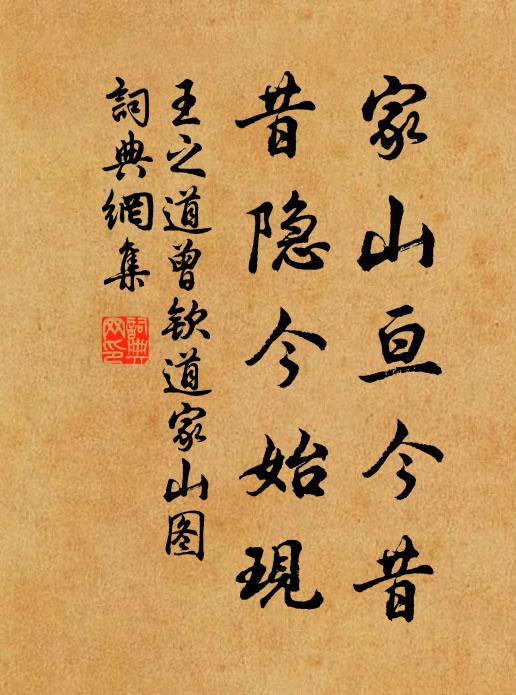 家山亘今昔
昔隐今始現
王之道曾钦道家山图
詞典網集
詞典网印